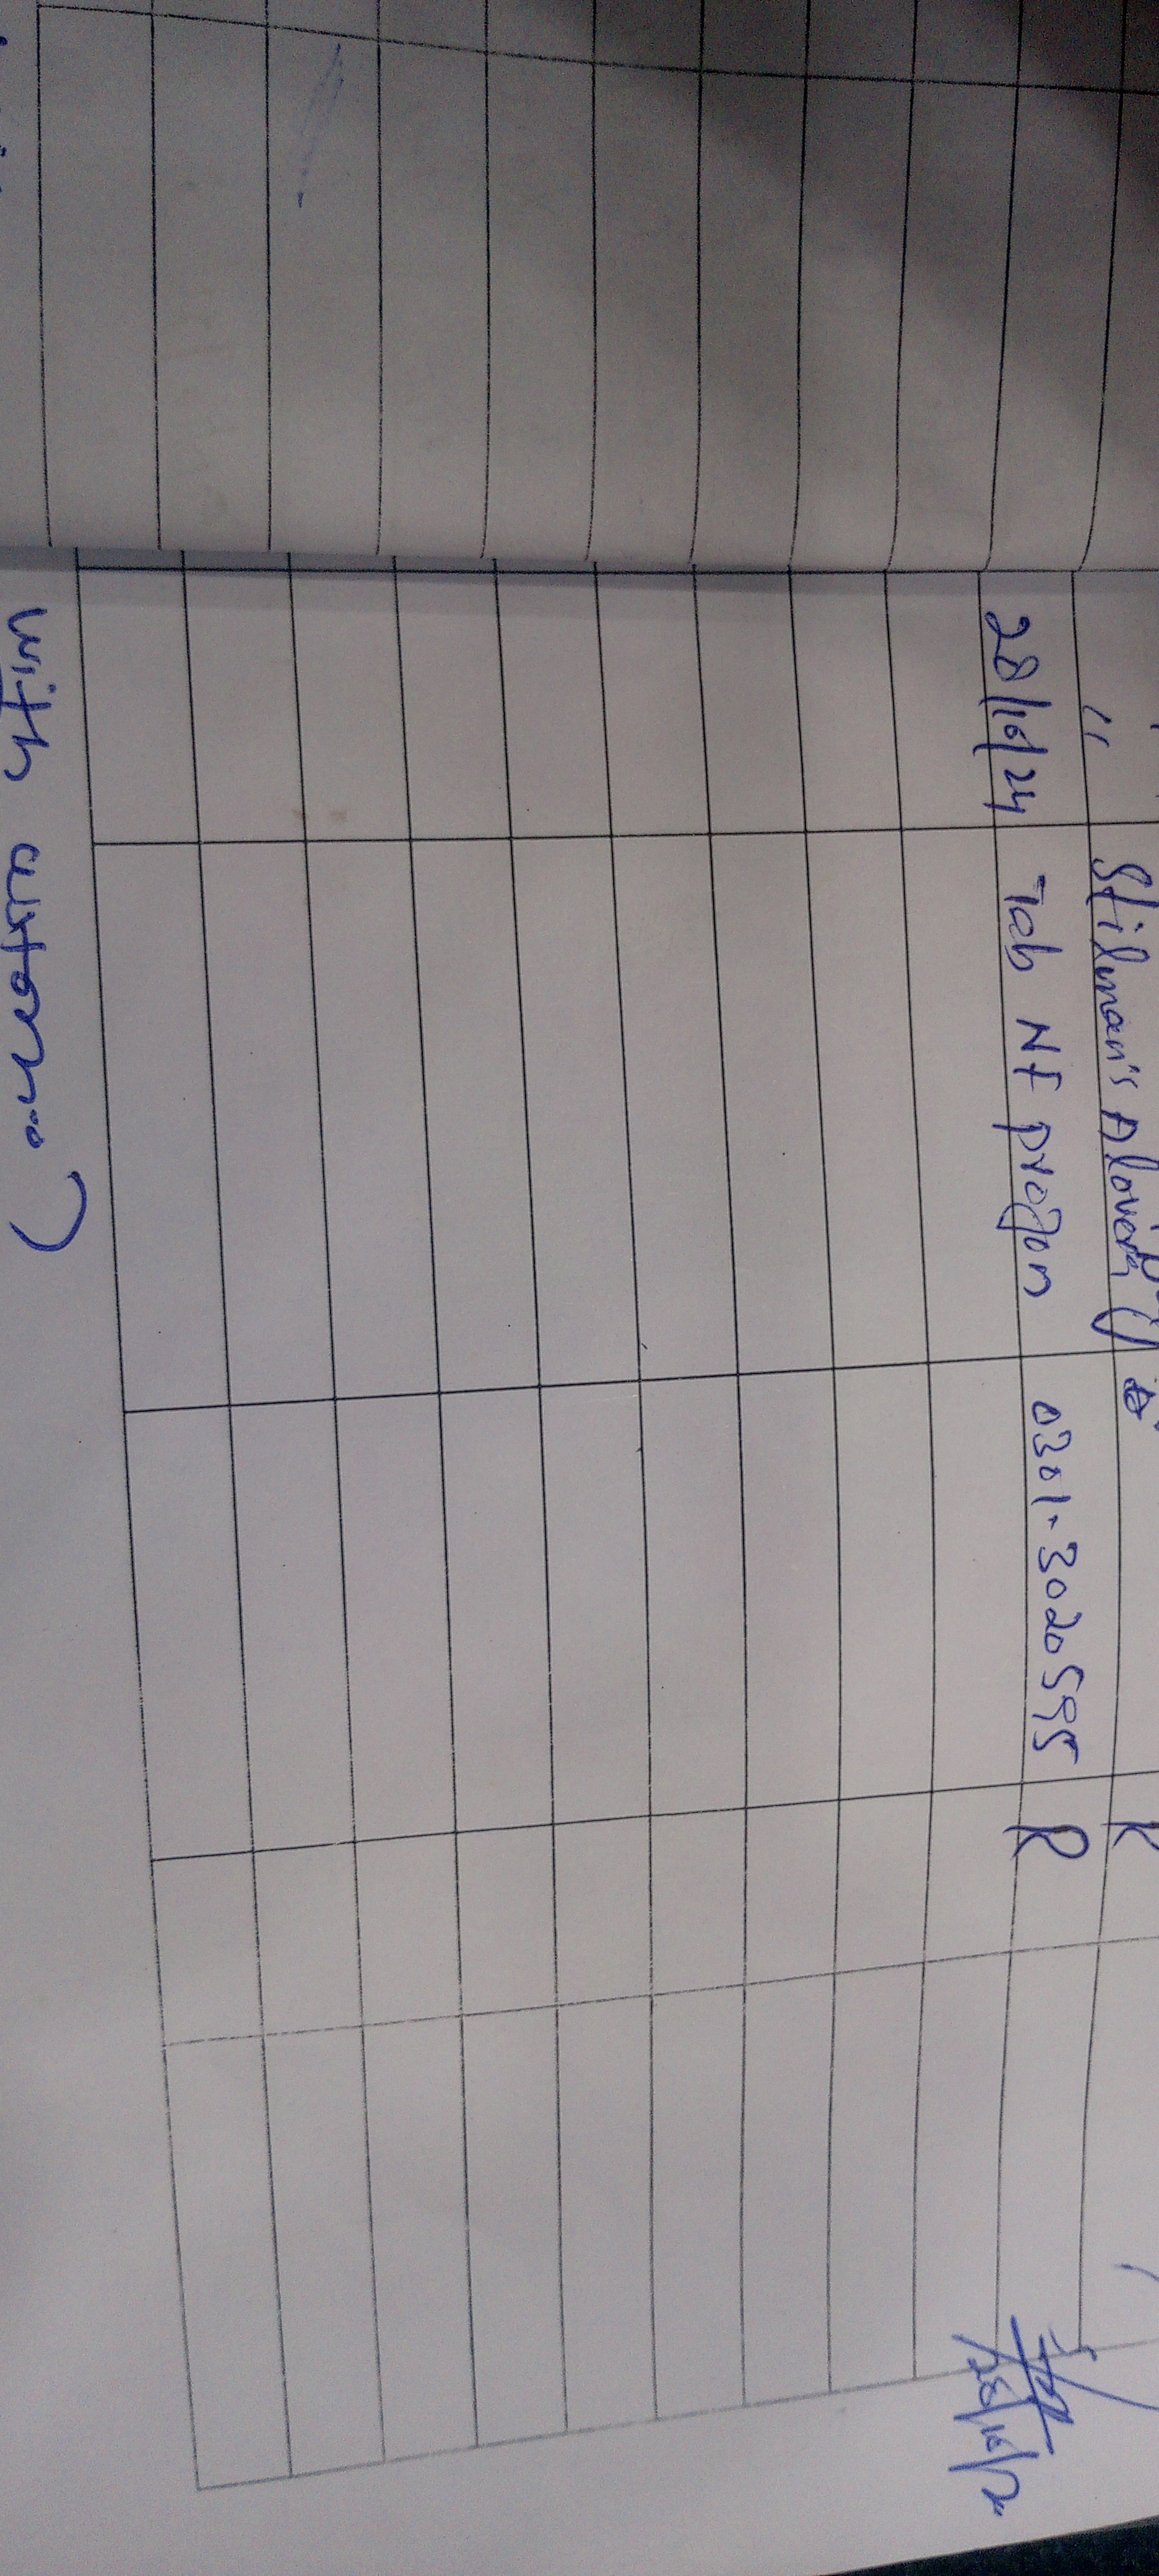 " Stilman's Alovera ()
28/10/24 Tab NF proqon 0301-3020595 R
28/10/2
with